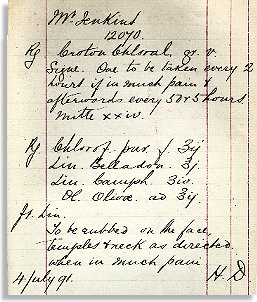 Mr Jenkins
12070.
Rg Croton Chloral gr. v
Signe. One to be taken every 2
hours if in much pain &
afterwards every 3 or 5 hours
Mitte xxiv.
Rg Chlorof. pur. ʒij
Lin. Belladon. ʒj
Lin. Camph. ʒiv.
Ol. Olivæ ad ʒij
ft. Lin.
To be rubbed on the face,
temples & neck as directed
when in much pain
4 July 91. H D